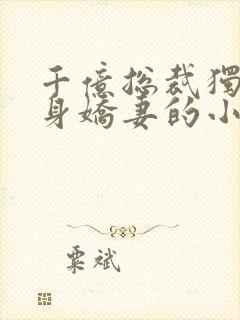 千億總裁獨
身嬌妻的小
粟斌